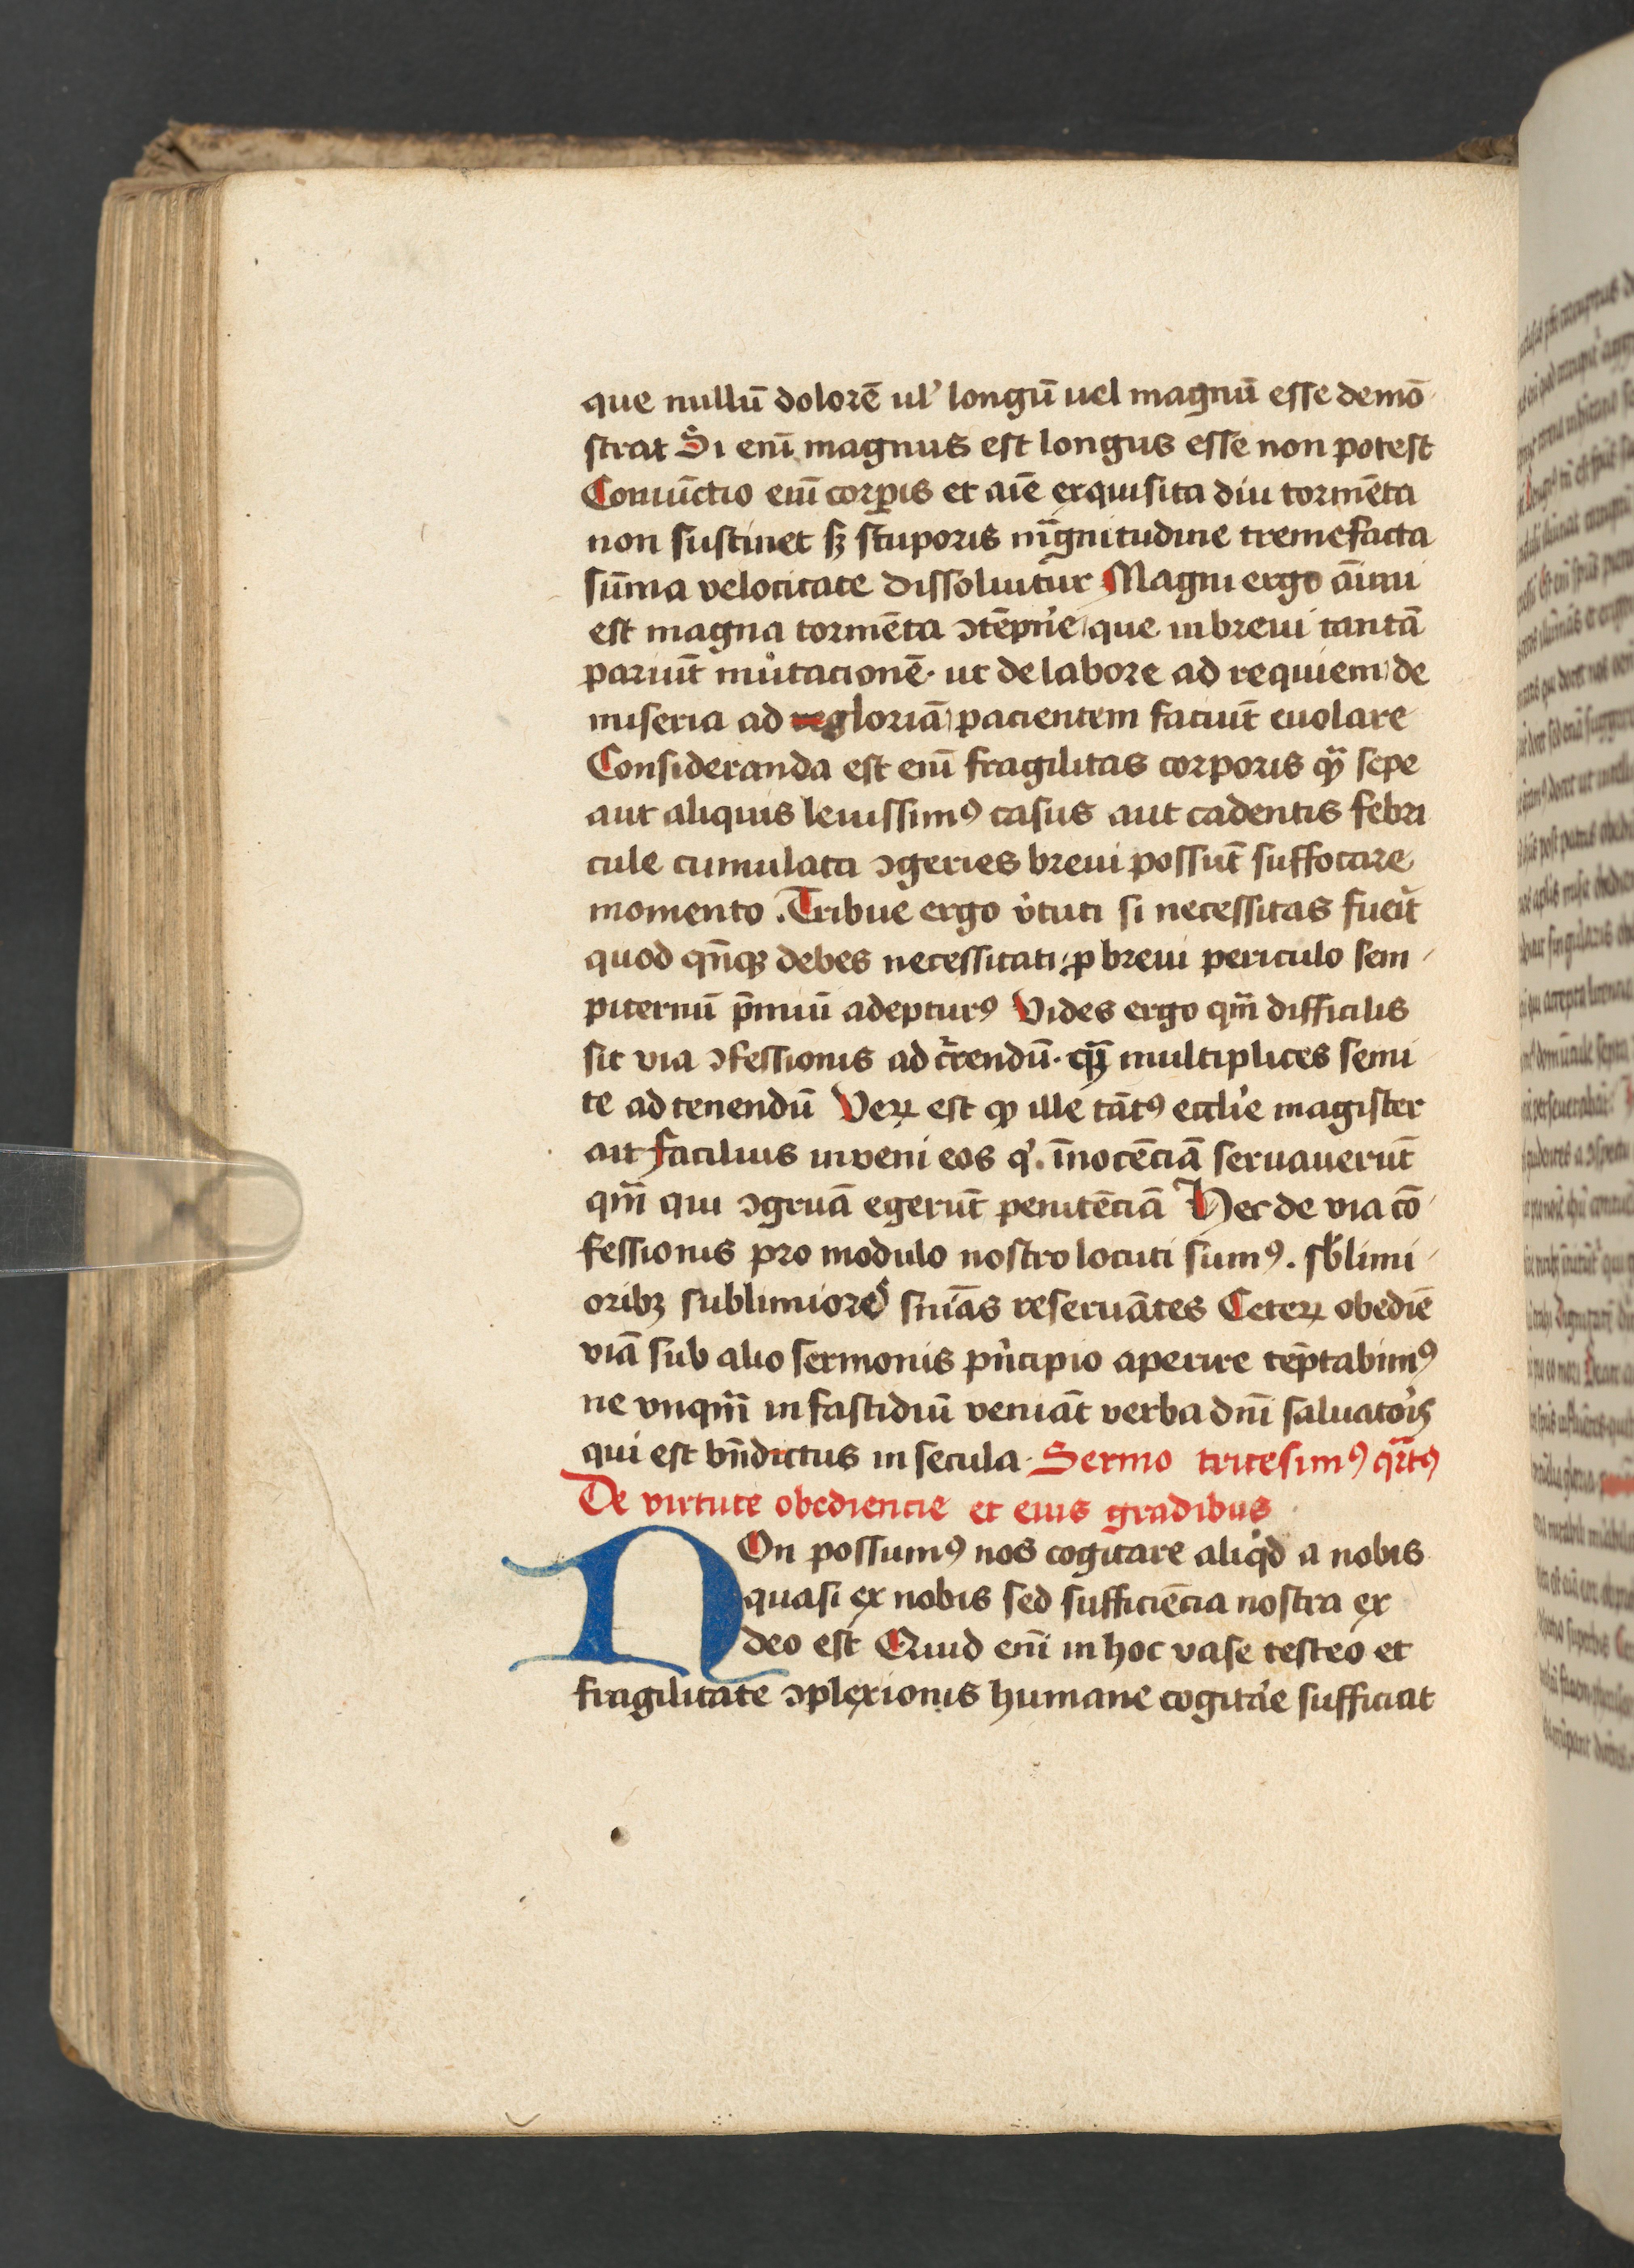 que nullū dolorē ul’ longū uel magnū esse demō
strat Si enī magnus est longus esse non potest
Coniūctio enī corꝑis et aīe exquisita diu tormēta
non sustinet sꝫ stuporis mgnitudine tremefacta
sūma velocitate dissoluitur Magni ergo aīmi
est magna tormēta ɔtēpn’e que in breui tantā
pariūt mutacionē· ut de labore ad requiem de
miseria ad re gloriā pacientem faciūt euolare
Consideranda est enī fragilitas corporis qꝫ sepe
aut aliquis leuissimꝰ casus aut cadentis febri
cule cumulata ɔgeries breui possūt suffocare
momento . Tribue ergo v̓tuti si necessitas fuēit
quod qn̄qꝫ debes necessitati ; ꝓ breui periculo sem
piternū p̄miū adepturꝰ Vides ergo qm̄ difficilis
sit via ɔfessionis ad c̓rendū· qꝫ multiplices semi
te ad tenendū Veꝝ est ꝙ ille tātꝰ eccl’ie magister
ait facilius inveni eos q’ . īnocēciā seruauerūt
qm̄ qui ɔgruā egerūt penitēciā Hec de via cō
fessionis pro modulo nostro locuti sumꝰ . sb̓limi
oribꝫ sublimiores snīas reseruātes Ceteꝝ obediē
viā sub alio sermonis pn̓cipio aperire tēptabimꝰ
ne vnqm̄ in fastidiū veniāt verba dnī saluatoris
qui est bn̄dictus in secula · Sermo tricesimꝰ qrtꝰ
De virtute obediencie et eius gradibus
NOn possumꝰ nos cogitare aliqd a nobis
quasi ex nobis sed sufficiēcia nostra ex
deo est Quid enī in hoc vase testeo et
fragilitate ɔplexionis humane cogita’e sufficiat